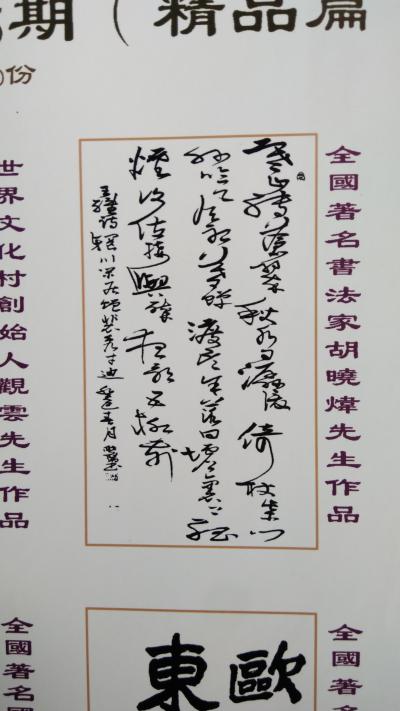 期（精品篇
份
全國著名書法家胡曉煒先生作品
寒山轉蒼翠秋水日潺湲倚杖柴門
外臨風聽暮蟬渡頭餘落日墟里上孤
煙復值接輿醉狂歌五柳前
王維詩輞川閑居贈裴秀才迪
世界文化村創始人觀雲先生作品
全國著名
東歐
全國著名